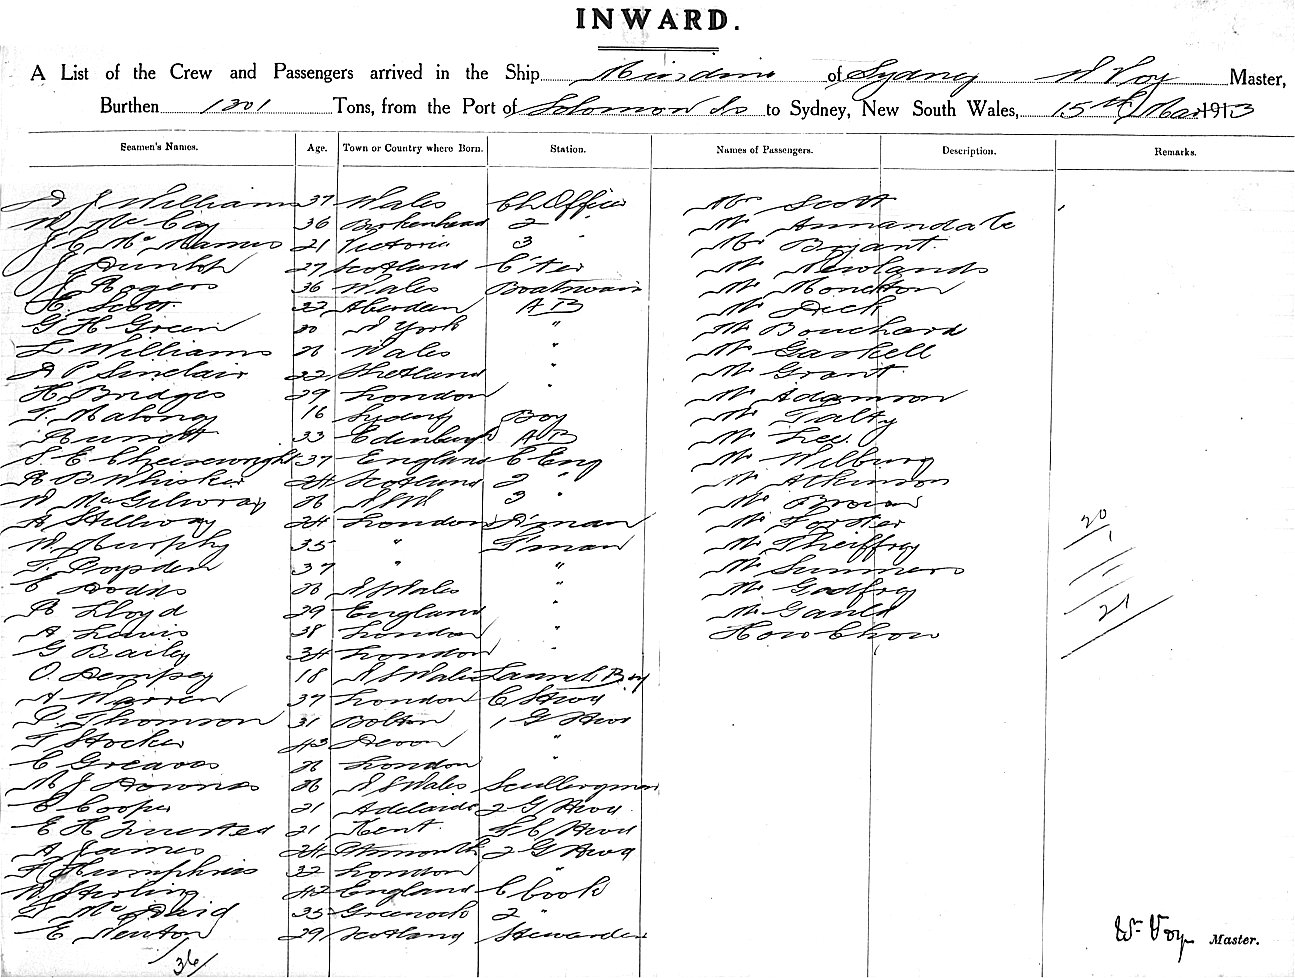 INWARD.
A List of the Crew and Passengers arrived in the Ship Mindini of Sydney W Voy Master,
Burthen 1201 Tons, from the Port of Solomon Is to Sydney, New South Wales, 15th Mar 1913
Seamen's Names. Age. Town or Country where Born. Station. Names of Passengers. Description. Remarks.
D J Williams 37 Wales Ch Officer Mr Scott
W McCay 36 Birkenhead 2 " Mr Annandale
J C McManus 21 Victoria 3 " Mr Bryant
J 27 Scotland C'ter Mr Newlands
J Rogers 36 Wales Boatswain Mr Monckton
H Scott 22 Aberdeen AB Mr Dick
G H Green N York " Mr Bouchard
L Williams 26 Wales " Mr Gaskell
A P Sinclair 22 Shetland " Mr Grant
H Bridges 29 London " Mr Adamson
T. Mahony 16 Sydney Boy Mr Talty
33 Edinburgh AB Mr Lee
S E Cheesewright 37 England C Eng Mr Wilbury
R B Whisker 24 Scotland 2 " Mr Atkinson
W McGilvray 26 NSW 3 " Mr Brown
A Stillway 24 London D'man Mr Forster 20
W Murphy 35 " F'man Mr Theiffry 1
T. Poysden 37 " " Mr Summers
C Dodds 26 N S Wales " Mr Godfrey
R Lloyd 29 England " Mr Gauld 21
A Lewis 38 London " How Chow
G Bailey 34 London "
O. Dempsey 18 N S Wales Boy
A Warren 37 London C Stwd
P. Thomson 31 Bolton 1 G Stwd
T Stocker 43 Devon "
C Greaves 26 London "
M J Downes 26 N S Wales Sculleryman
C Cooper 21 Adelaide 2 G Stwd
E H Quested 21 Kent. Stwd
A James 24 2 G Stwd
H Humphries 32 London "
W Sterling 42 England C Cook
McDaid 35 Greenock 2 "
E Newton 29 Scotland Stewardess
36
Wm Voy Master.